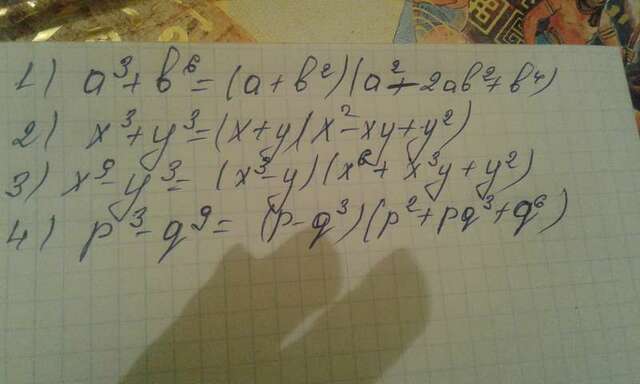 1) a³ + b⁶ = (a + b²)(a² - 2ab² + b⁴)
2) x³ + y³ = (x + y)(x² - xy + y²)
3) x⁹ - y³ = (x³ - y)(x⁶ + x³y + y²)
4) p³ - q⁹ = (p - q³)(p² + pq³ + q⁶)